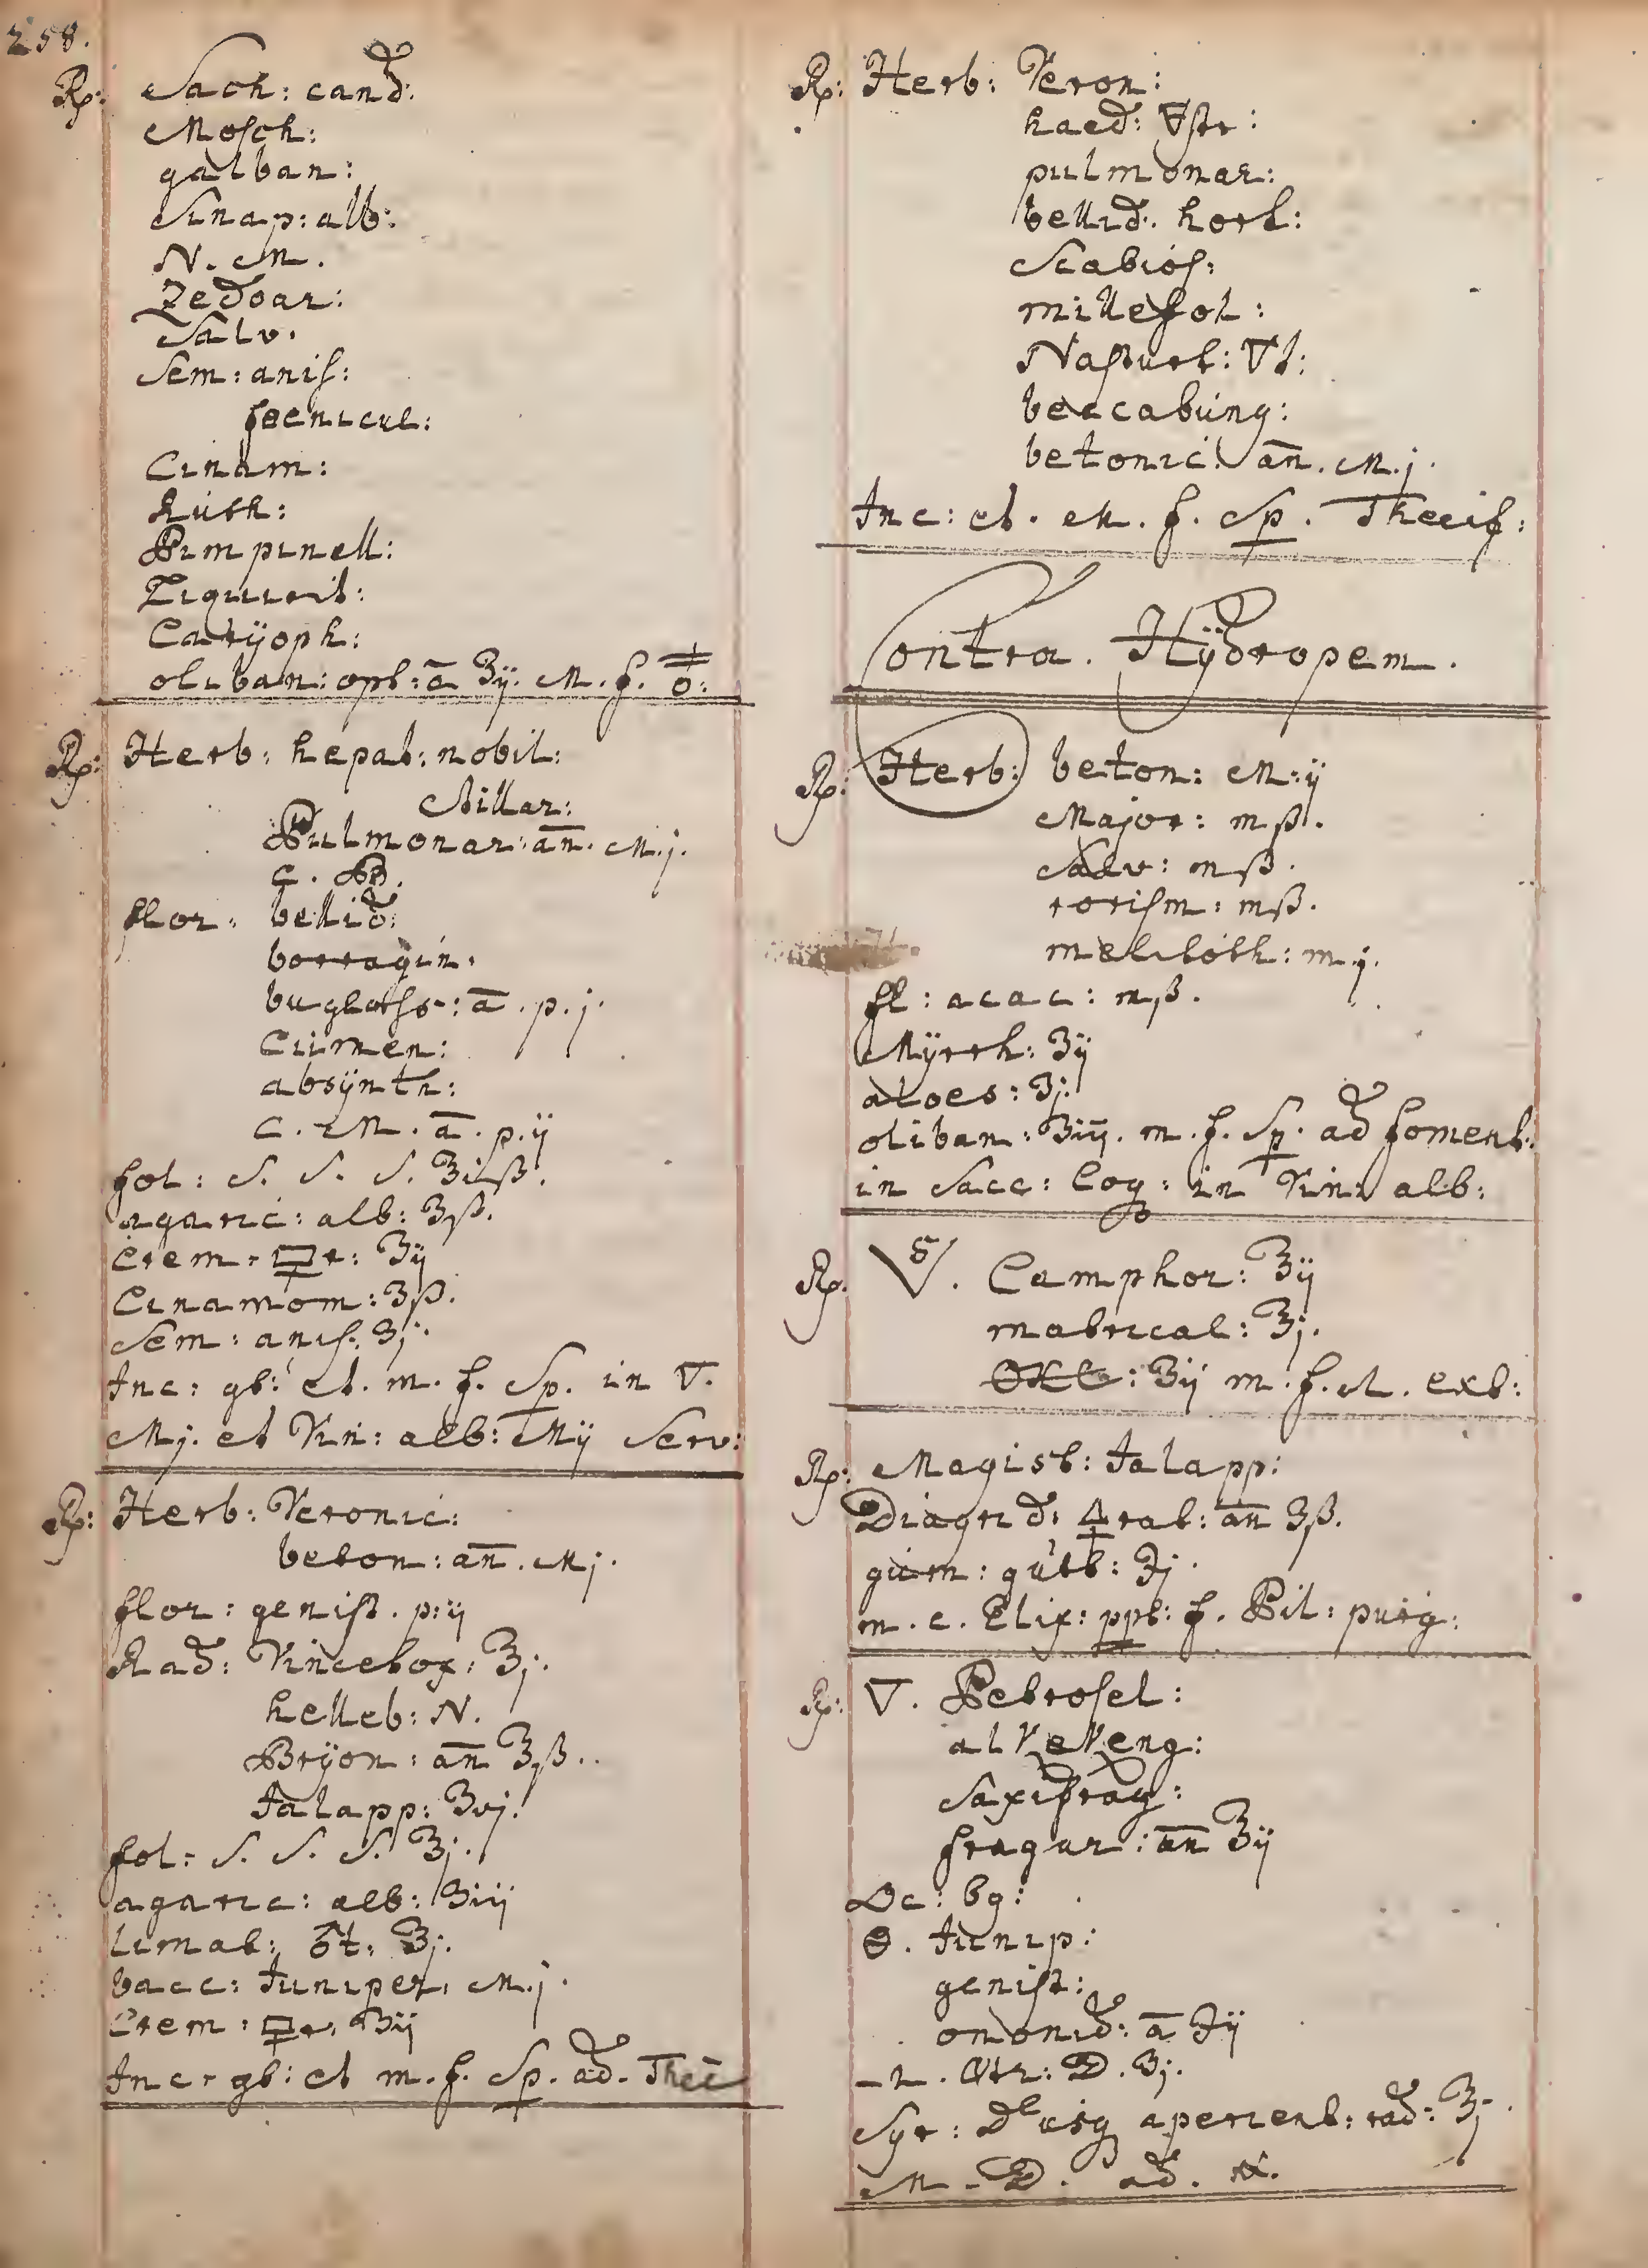 258.
Rp: Sach: cand:
Mosch:
galban:
Sinap: alb:
N. M.
Zedoar:
Salv.
Sem: anis:
foenicul:
Cinam:
Ruth:
Pimpinell:
Liquirit:
Carÿoph:
oliban: opt: ā ʒij. M. f.
Rp: Herb: hepat: nobil:
Pulmonar: añ. M.j.
C. B.
flor: bellid:
borragin.
bugloss: ā. p. j.
Cumen:
absÿnth:
C. M. ā. p. ij
fol: S. S. S. ʒiß.
agaric: alb: ʒß.
Crem. 🜿r: ʒij
Cinamom: ʒß.
Sem: anis: ʒj.
Inc: gt: et. m. f. Sp. in ▽.
Mj. et Vin: alb: Mij Serv:
Rp: Herb: Veronic:
beton: añ. Mj.
flor: genist. p: ij
Rad: Vincetox: ʒj.
helleb: N.
Brÿon: añ ʒß.
Jalapp: ʒvj.
fol: S. S. S. ʒj.
agaric: alb: ʒiij
limat: ♂t: ʒj.
bacc: Juniper. M.j.
Crem: 🜿r. ʒij
Inc. gt: et m. f. Sp. ad. Theē
Rp: Herb: Veron:
haed: ▽str:
pulmonar:
bellid. hort:
Scabios:
millefol:
Nasturt: ▽t:
beccabung:
betonic: añ. M.j.
Inc: et. M. f. Sp. Theeif:
Contra. Hÿdropem.
Rp: Herb: beton: M: ij
Major: mß.
Salv: mß.
rorism: mß.
meliloth: m j.
fl: acac: mß.
Mÿrrh: ʒij
aloes: ʒj.
oliban: ʒiij. m. f. Sp. ad foment:
in Sacc: Coq: in Vino alb:
Rp. ▽. Camphor: ʒij
matrical: ʒj.
: ʒij m. f. M. ext:
Rp: Magist: Jalapp:
Diagrid: 🜍rat: añ ʒß.
gum: gutt: ℈j.
m. c. Elix: ppt: f. Pil: purg:
Rp: ▽. Petrosel:
alKeKeng:
Saxifrag:
fragar: añ ʒij
Oc: bg:
🜔. Junip:
genist:
ononid: ā ℈ij
D. ʒj.
Syr: aperient: rad: ʒj.
M. D. ad.